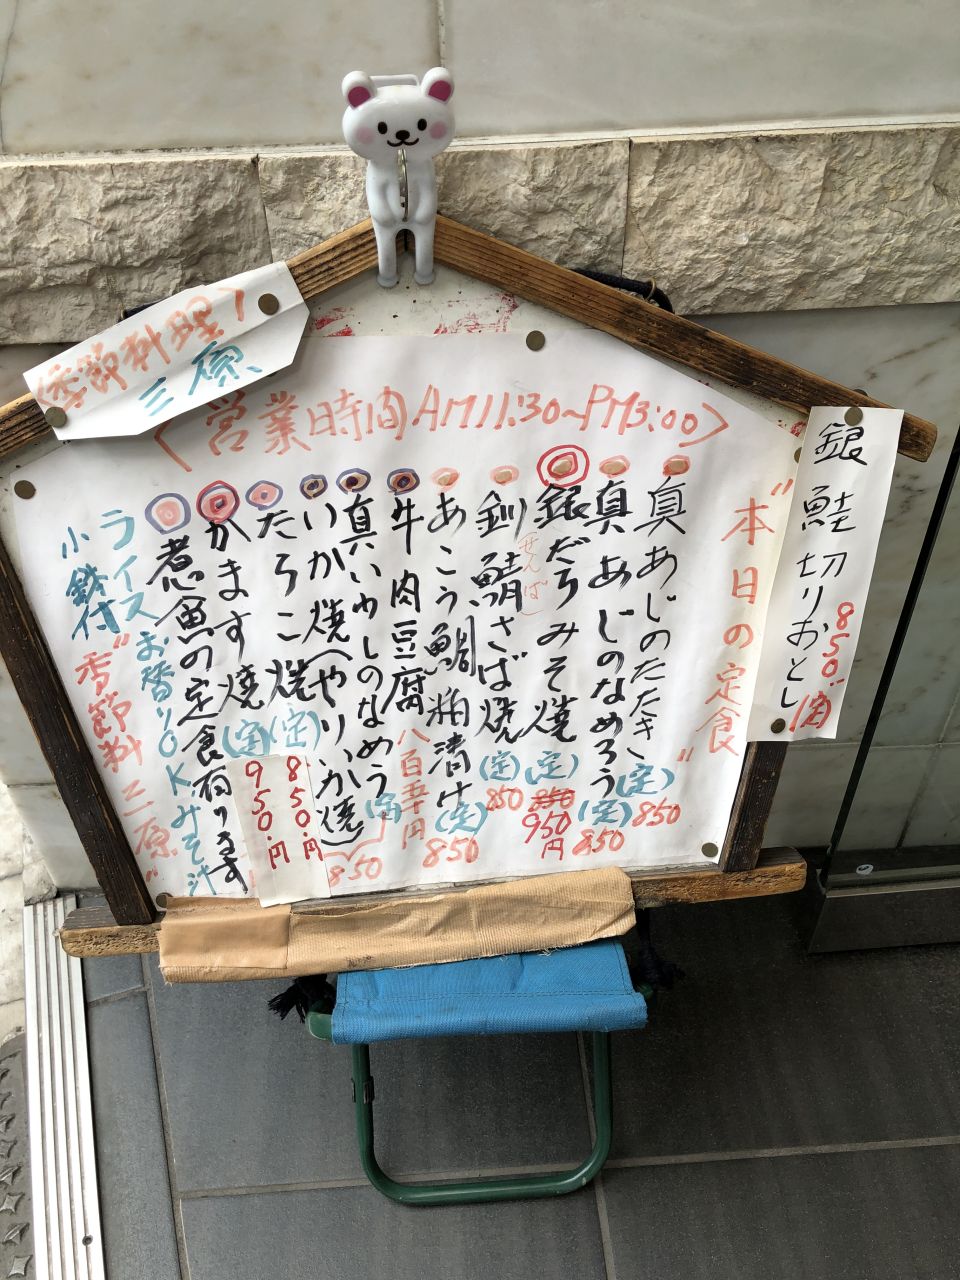 季節料理
三原
〈営業時間AM11:30~PM3:00〉
銀鮭切りおとし
850
(定)
"本日の定食"
真あじのたたき(定)850
真あじのなめろう(定)850
銀だらみそ焼(定)850
950円
釧鯖さば焼(定)850
(せんば)
あこう鯛粕漬け(定)850
牛肉豆腐八百五十円
真いわしのなめろう(定)
いか焼(やりいか焼)
850
たらこ焼(定)850.円
かます焼(定)950.円
煮魚の定食有ります
ライスお替りOKみそ汁
小鉢付"季節料三原"